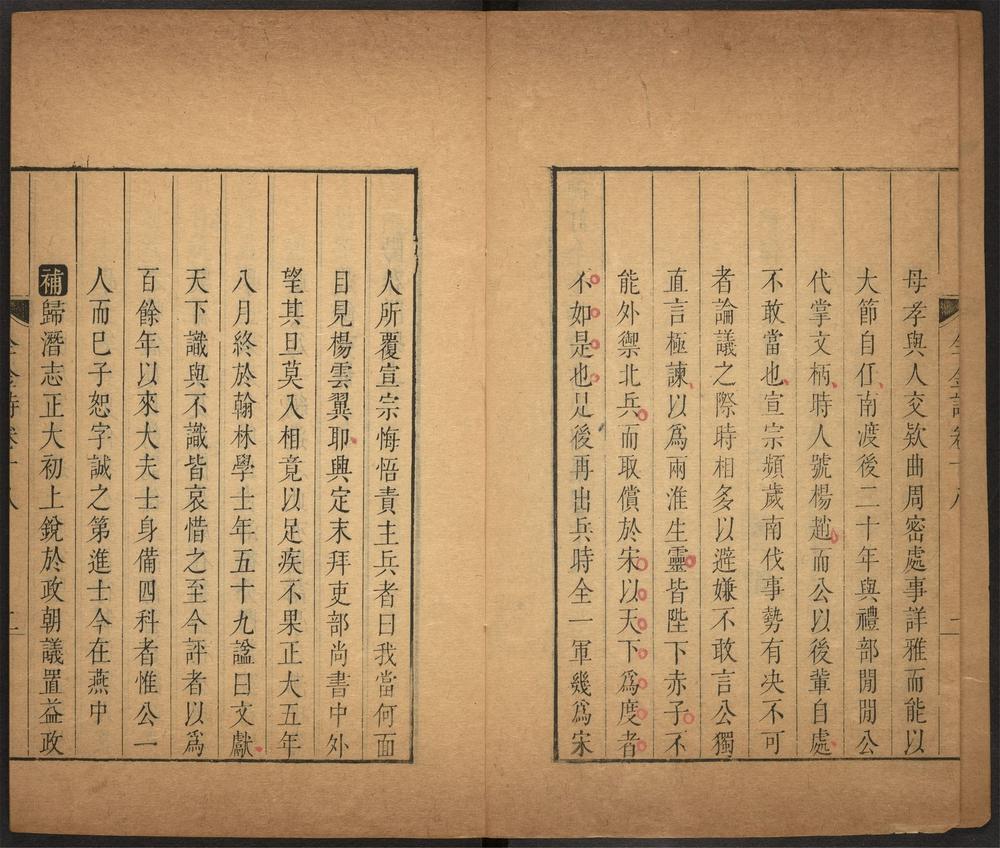 母孝與人交欵曲周密處事詳雅而能以
大節自任南渡後二十年與禮部閒閒公
代掌文柄時人號楊趙而公以後輩自處
不敢當也宣宗頻歲南伐事勢有决不可
者論議之際時相多以避嫌不敢言公獨
直言極諫以爲兩淮生靈皆陛下赤子不
能外禦北兵而取償於宋以天下爲度者
不如是也是後再出兵時全一軍幾爲宋
人所覆宣宗悔悟責主兵者曰我當何面
目見楊雲翼耶興定末拜吏部尚書中外
望其旦莫入相竟以足疾不果正大五年
八月終於翰林學士年五十九諡曰文獻
天下識與不識皆哀惜之至今評者以爲
百餘年以來大夫士身備四科者惟公一
人而已子恕字誠之第進士今在燕中
補歸潛志正大初上銳於政朝議置益政